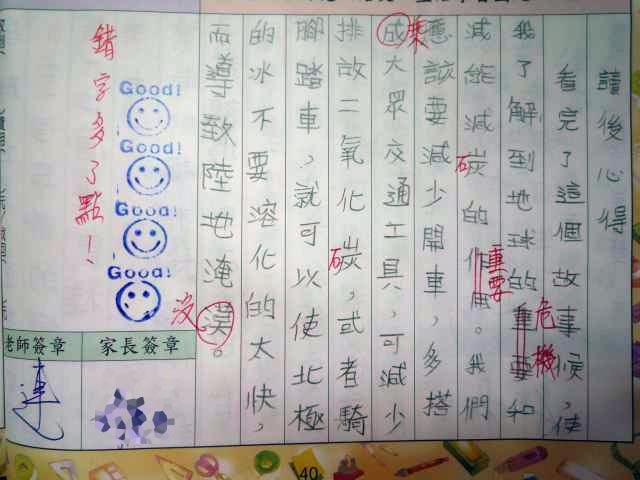 讀後心得
看完了這個故事候，使
我了解到地球的重要和
危機
減能減碳的作用。我們
碳
重要
應該要減少開車，多搭
成大眾交通工具，可減少
乘
排放二氧化碳，或者騎
碳
腳踏車，就可以使北極
的冰不要溶化的太快，
而導致陸地淹漠。
沒
錯字多了點！
Good!
Good!
Good!
Good!
老師簽章
家長簽章
40